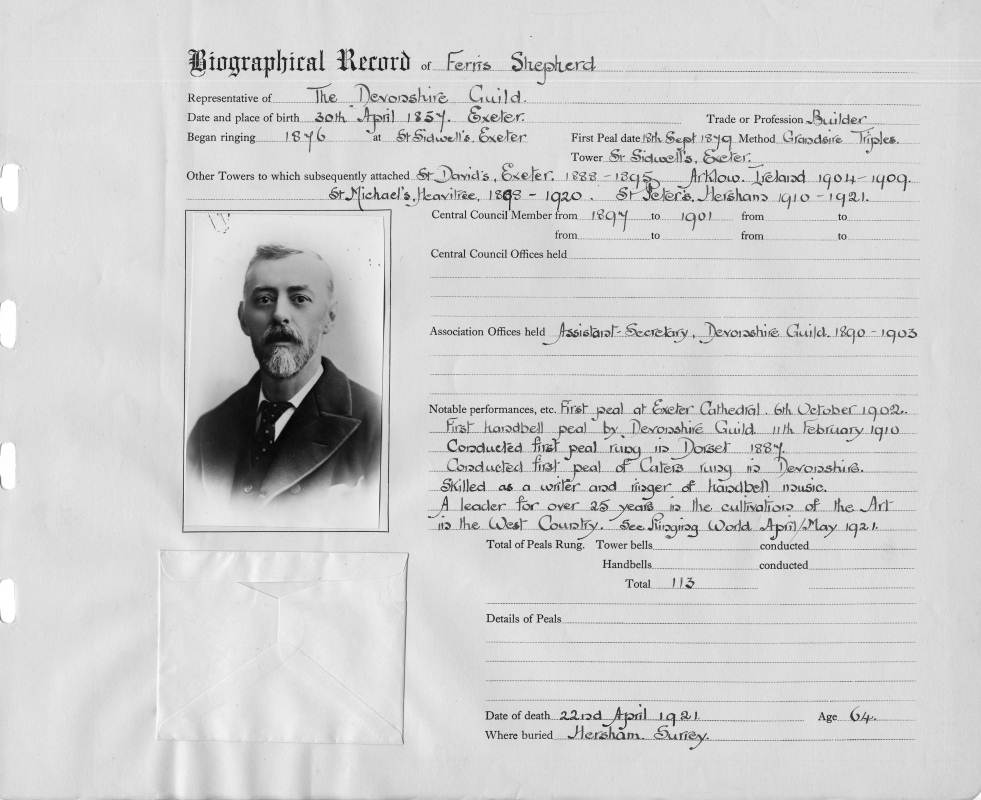 Biographical Record of Ferris Shepherd
Representative of The Devonshire Guild.
Date and place of birth 30th April 1857. Exeter. Trade or Profession Builder
Began ringing 1876 at St Sidwell's, Exeter First Peal date 18th Sept 1879 Method Grandsire Triples.
Tower St Sidwell's, Exeter.
Other Towers to which subsequently attached St David's, Exeter. 1888-1895 Arklow. Ireland 1904-1909.
St Michael's, Heavitree, 1898-1920. St Peter's, Hersham 1910-1921.
Central Council Member from 1897 to 1901 from to
from to from to
Central Council Offices held
Association Offices held Assistant-Secretary, Devonshire Guild. 1890-1903
Notable performances, etc. First peal at Exeter Cathedral. 6th October 1902.
First handbell peal by Devonshire Guild 11th February 1910
Conducted first peal rung in Dorset 1887.
Conducted first peal of Caters rung in Devonshire.
Skilled as a writer and ringer of handbell music.
A leader for over 25 years in the cultivation of the Art
in the West Country. See Ringing World April/May 1921.
Total of Peals Rung. Tower bells conducted
Handbells conducted
Total 113
Details of Peals
Date of death 22nd April 1921 Age 64.
Where buried Hersham. Surrey.